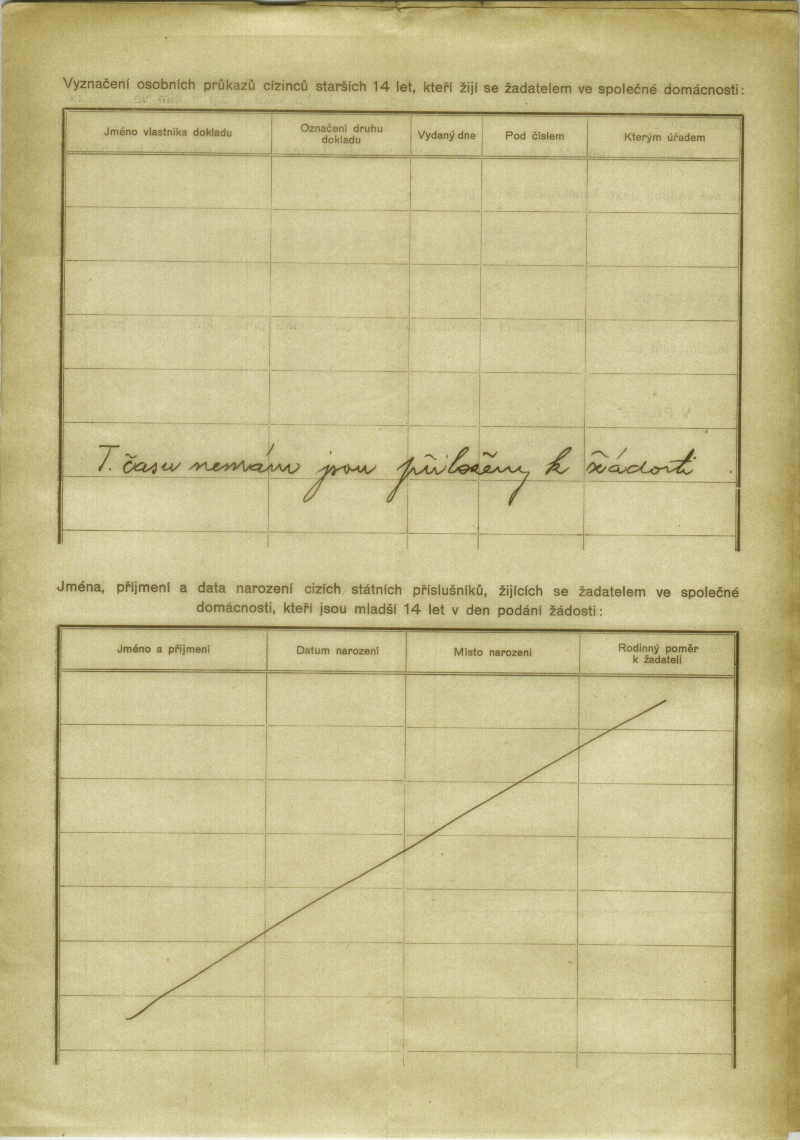 Vyznačení osobních průkazů cizinců starších 14 let, kteří žijí se žadatelem ve společné domácnosti:
Jméno vlastníka dokladu
Označení druhu
dokladu
Vydaný dne
Pod číslem
Kterým úřadem
T. času nemám jsou přiloženy k žádosti
Jména, příjmení a data narození cizích státních příslušníků, žijících se žadatelem ve společné
domácnosti, kteří jsou mladší 14 let v den podání žádosti:
Jméno a příjmení
Datum narození
Místo narození
Rodinný poměr
k žadateli